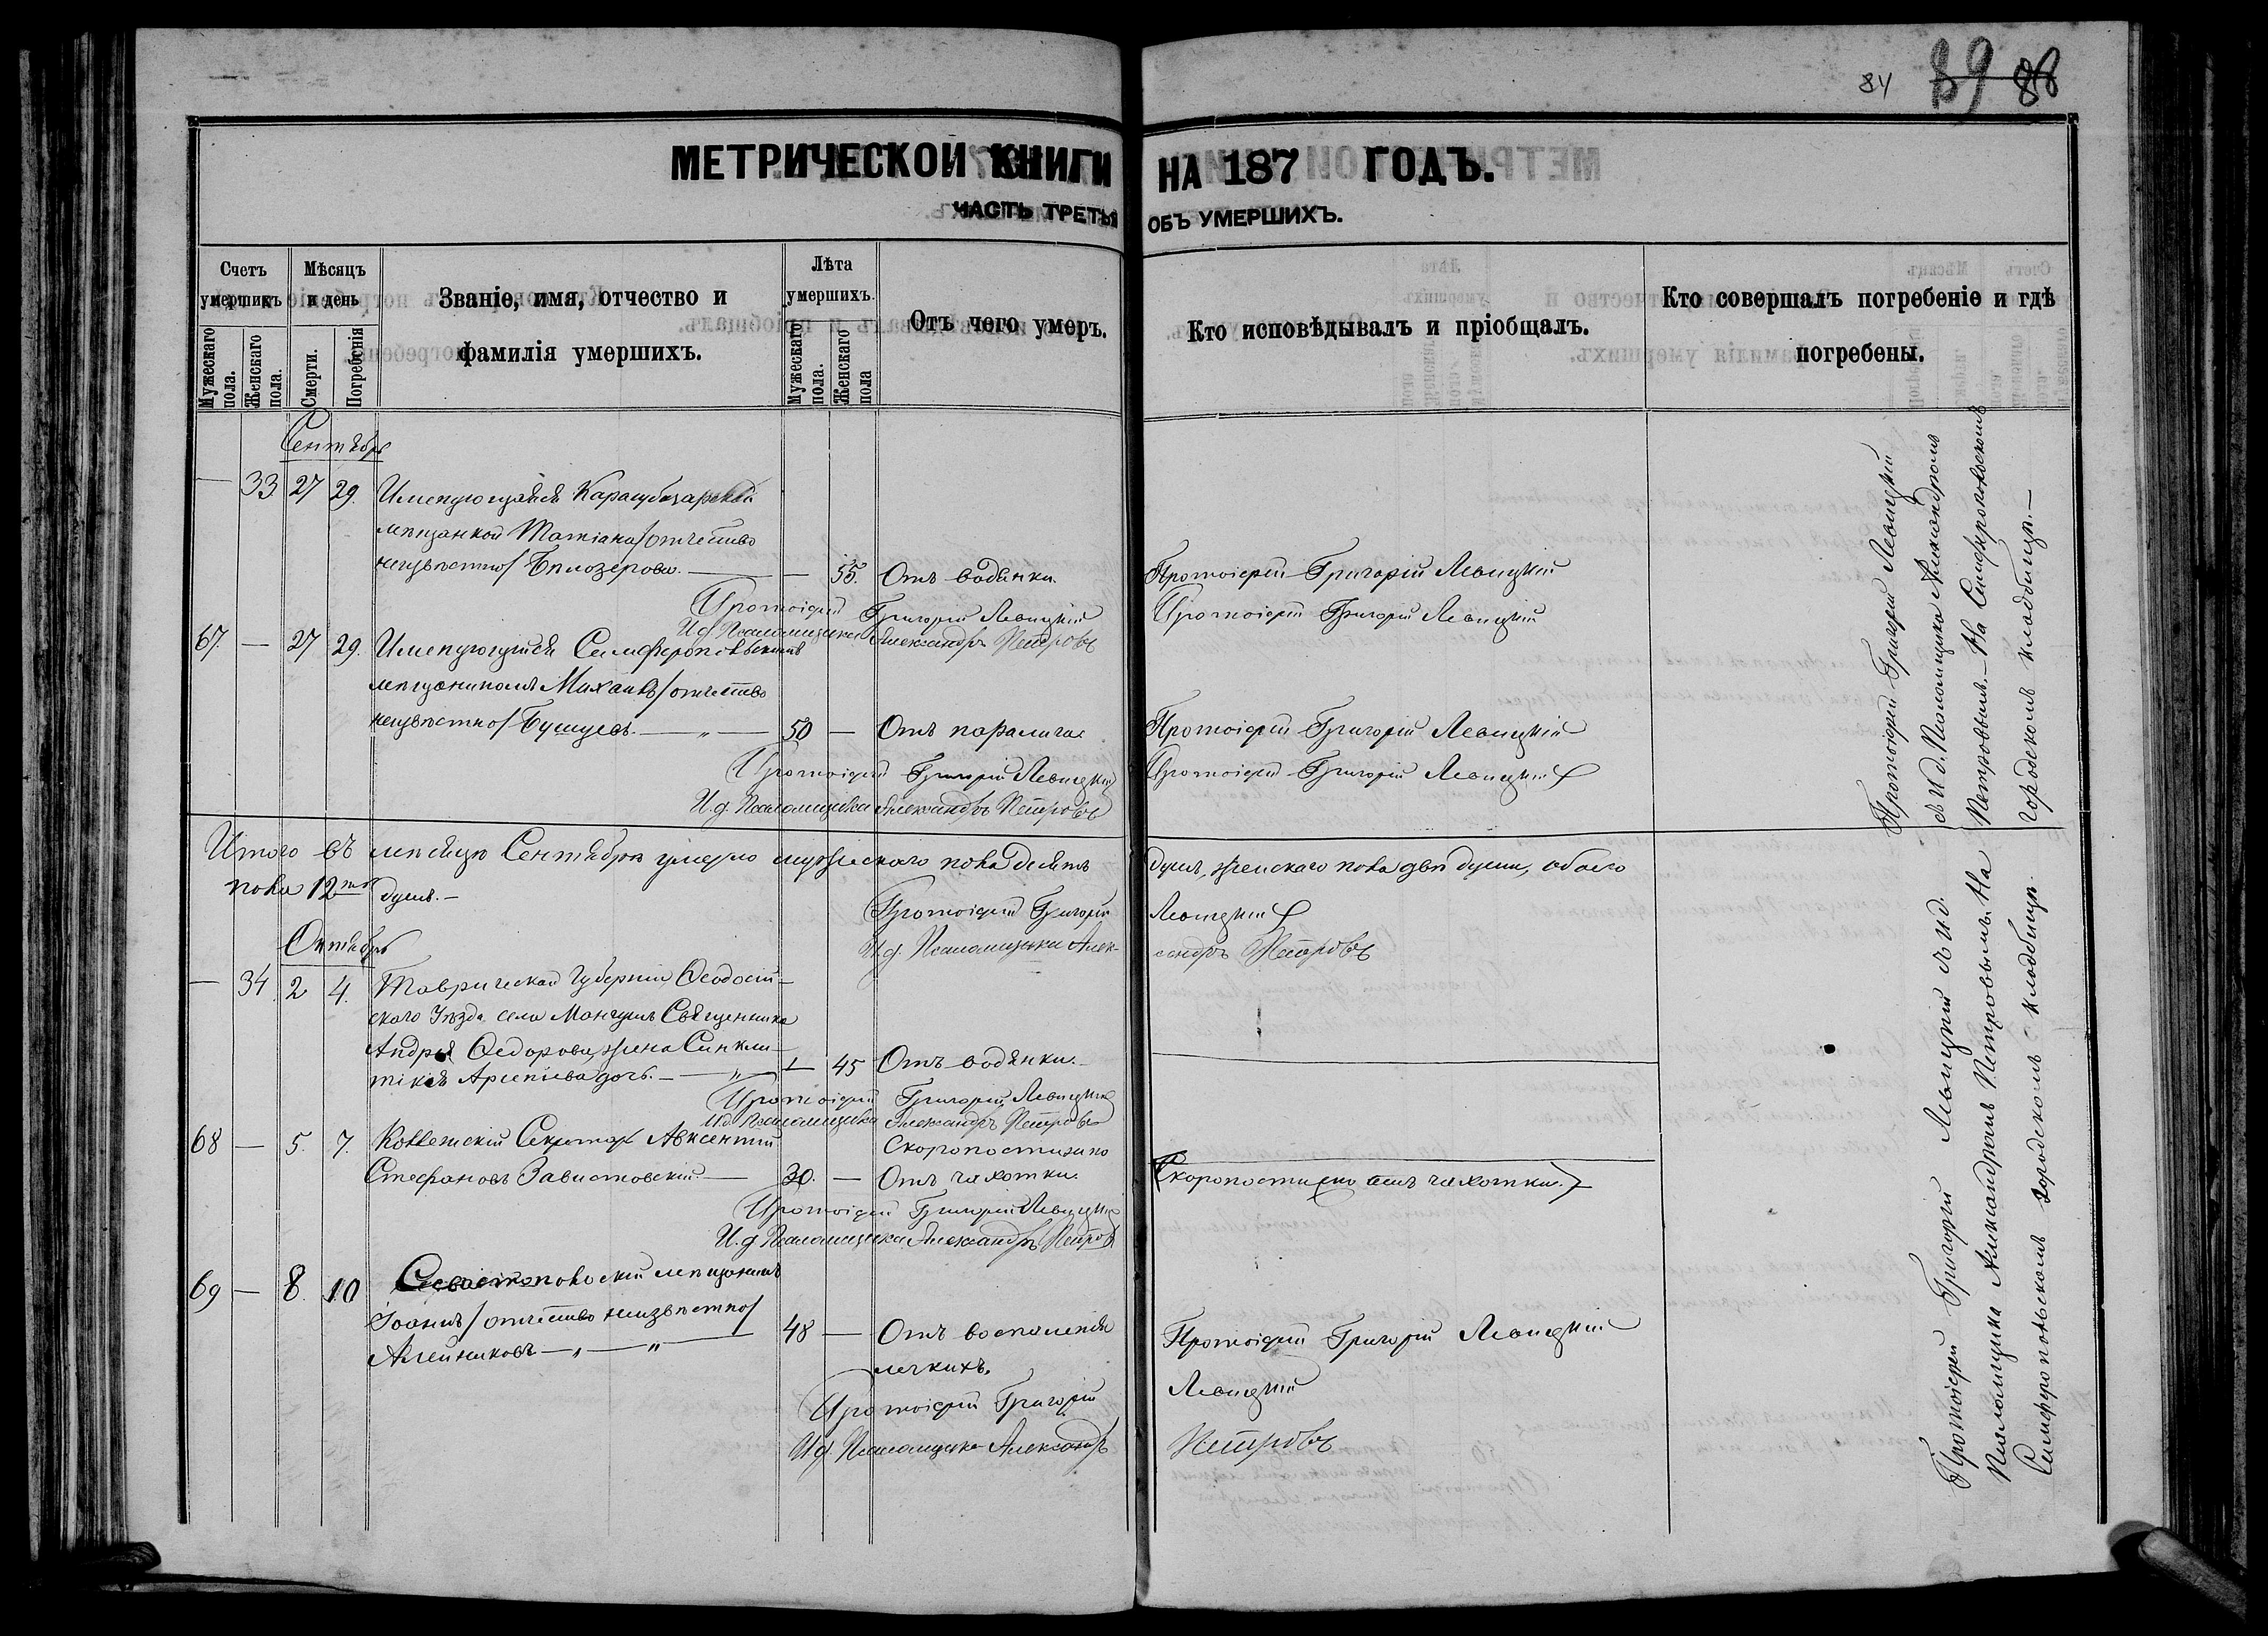 84 89 88
МЕТРИЧЕСКОЙ КНИГИ НА 187 ГОДЪ.
ЧАСТЬ ТРЕТЬЯ ОБЪ УМЕРШИХЪ.
Счетъ умершихъ
Мужескаго пола.
Женскаго пола.
Мѣсяцъ и день
Смерти.
Погребенія
Званіе, имя, отчество и
фамилія умершихъ.
Лѣта умершихъ.
Мужескаго пола.
Женскаго пола
Отъ чего умеръ.
Кто исповѣдывалъ и пріобщалъ.
Кто совершалъ погребеніе и гдѣ
погребены.
Сентябрь
— 33 27 29. Именующаяся Карасубазарской
мѣщанкой Татіана /отчество
неизвѣстно/ Бѣлозерова. — — 55. Отъ водянки. Протоіерей Григорій Левицкій
Протоіерей Григорій Левицкій Протоіерей Григорій Левицкій
И.д. Псаломщика Александръ Петровъ
67. — 27 29. Именующійся Симферопольскимъ
мѣщаниномъ Михаилъ /отчество
неизвѣстно/ Бушуевъ. — „ — 50 — Отъ паралича Протоіерей Григорій Левицкій
Протоіерей Григорій Левицкій Протоіерей Григорій Левицкій
И.д. Псаломщика Александръ Петровъ
Протоіерей Григорій Левицкій
съ И.д. Псаломщика Александромъ
Петровымъ. — На Симферопольскомъ
городскомъ кладбищѣ. —
Итого въ мѣсяцѣ Сентябрѣ умерло мужескаго пола десять душъ, женскаго пола двѣ души, обоего
пола 12ть душъ. —
Протоіерей Григорій Левицкій
И.д. Псаломщика Александръ Петровъ
Октябрь
— 34. 2 4. Таврической Губерніи Ѳеодосій-
скаго Уѣзда села Мангушъ Священника
Андрея Ѳедорова жена Синкли-
тикія Арсеніева дочь. — „ — 45 Отъ водянки. —
Протоіерей Григорій Левицкій
И.д. Псаломщика Александръ Петровъ
68 — 5. 7. Коллежскій Секретарь Авксентій Скоропостижно
Стефановъ Завистовскій. — 30. — Отъ чахотки. (Скоропостижно отъ чахотки.)
Протоіерей Григорій Левицкій
И.д Псаломщика Александръ Петровъ
69 — 8. 10 Севастопольскій мѣщанинъ
Іоаннъ /отчество неизвѣстно/
Алейниковъ — „ — „ — 48 — Отъ воспаленія Протоіерей Григорій Левицкій
легкихъ.
Протоіерей Григорій Левицкій
И.д. Псаломщика Александръ Петровъ
Протоіерей Григорій Левицкій съ И.д.
Псаломщика Александромъ Петровымъ. На
Симферопольскомъ городскомъ кладбищѣ.